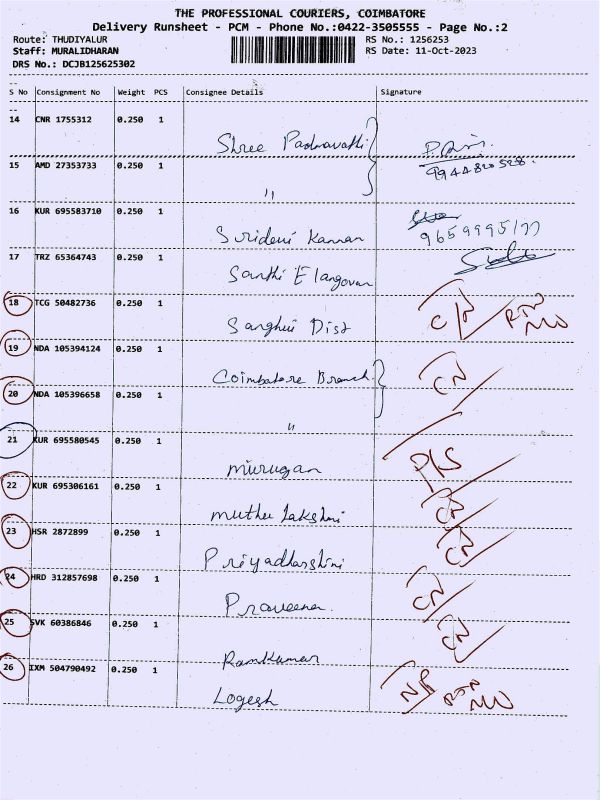 THE PROFESSIONAL COURIERS, COIMBATORE
Delivery Runsheet - PCM - Phone No.:0422-3505555 - Page No.:2
Route: THUDIYALUR RS No.: 1256253
Staff: MURALIDHARAN RS Date: 11-Oct-2023
DRS No.: DCJB125625302
S No Consignment No Weight PCS Consignee Details Signature
14 CNR 1755312 0.250 1
Shree Padmavathi
9944820528.
15 AMD 27353733 0.250 1
"
16 KUR 695583710 0.250 1
Sridevi Kannan 9659995177
17 TRZ 65364743 0.250 1
Santhi Elangovan
18 TCG 50482736 0.250 1
Sanghvi Dist
19 NDA 105394124 0.250 1
Coimbatore Branch CN
20 NDA 105396658 0.250 1
"
21 KUR 695580545 0.250 1
Murugan P/S
22 KUR 695306161 0.250 1
muthu lakshmi CN
23 HSR 2872899 0.250 1
Priyadharshini CN
24 HRD 312857698 0.250 1
Praveena CN
25 SVK 60386846 0.250 1
Ramkumar CN
26 IXM 504790492 0.250 1
Logesh